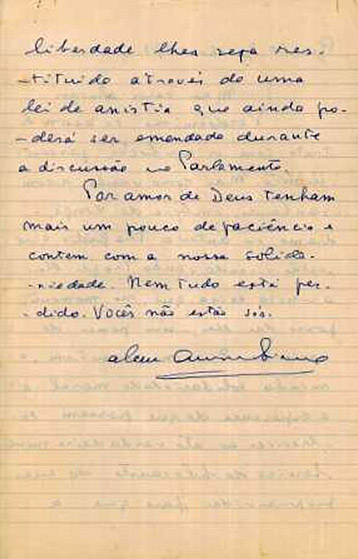 liberdade lhes seja res-
-tituida através de uma
lei de anistia que ainda po-
-derá ser emendada durante
a discussão no Parlamento.
Por amor de Deus tenham
mais um pouco de paciência e
contem com a nossa solida-
-riedade. Nem tudo está per-
dido. Vocês não estão sós.